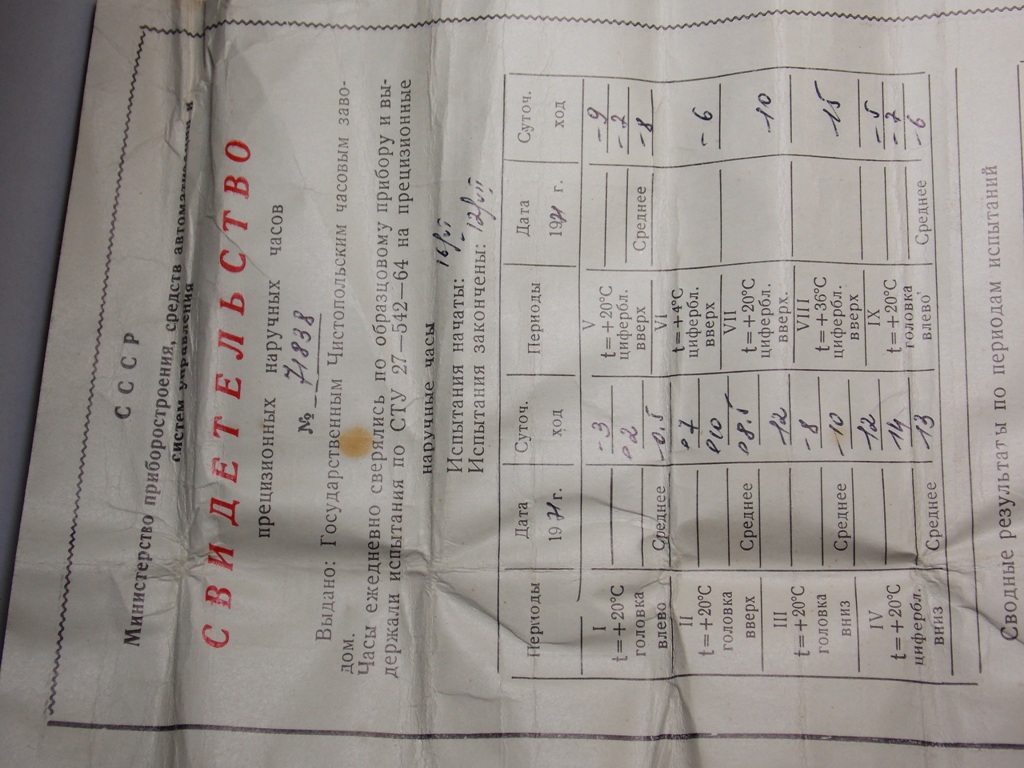 СССР
Министерство приборостроения, средств автоматики и
систем управления
СВИДЕТЕЛЬСТВО
прецизионных наручных часов
№ 71838
Выдано: Государственным Чистопольским часовым заво-
дом.
Часы ежедневно сверялись по образцовому прибору и вы-
держали испытания по СТУ 27—542—64 на прецизионные
наручные часы
Испытания начаты:
Испытания закончены:
Периоды Дата 1971 г. Суточ. ход Периоды Дата 1971 г. Суточ. ход
I
t=+20°С
головка
влево
-3
Среднее -0,5
II
t=+20°С
головка
вверх
Среднее
III
t=+20°С
головка
вниз
-12
-8
Среднее -10
IV
t=+20°С
цифербл.
вниз
-12
-14
Среднее -13
V
t=+20°С
цифербл.
вверх
-9
-7
Среднее -8
VI
t=+4°С
цифербл.
вверх
-6
VII
t=+20°С
цифербл.
вверх.
-10
VIII
t=+36°С
цифербл.
вверх
-15
IX
t=+20°С
головка
влево
-5
-7
Среднее -6
Сводные результаты по периодам испытаний